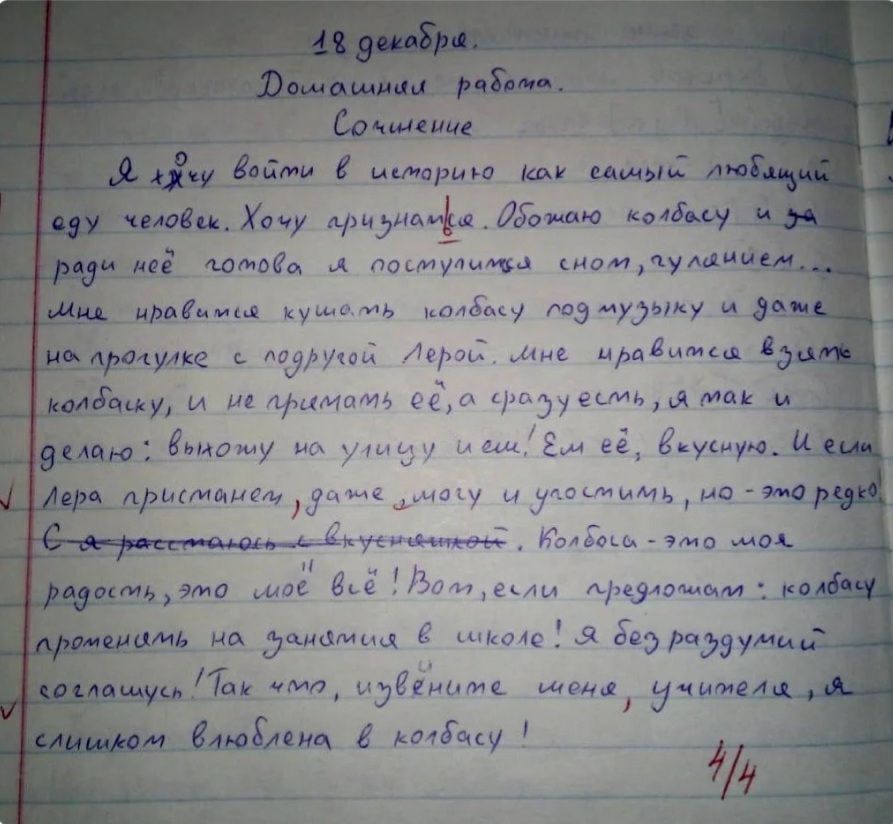 18 декабря.
Домашняя работа.
Сочинение
Я хочу войти в историю как самый любящий
еду человек. Хочу признаться. Обожаю колбасу и за
ради неё готова я поступиться сном, гулянием...
Мне нравится кушать колбасу под музыку и даже
на прогулке с подругой Лерой. Мне нравится взять
колбаску, и не прятать её, а сразу есть, я так и
делаю: выхожу на улицу и ем! Ем её, вкусную. И если
Лера пристанет, даже, могу и угостить, но - это редко
С я расстаюсь с вкусняшкой. Колбоса - это моя
радость, это моё всё! Вот, если предложат: колбасу
променять на занятия в школе! Я без раздумий
соглашусь! Так что, извените меня, учителя, я
слишком влюблена в колбасу!
4/4